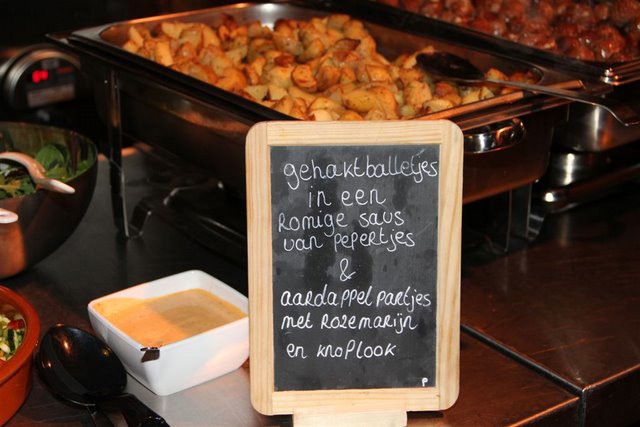 gehaktballetjes
in een
Romige saus
van pepertjes
&
aardappelpartjes
met Rozemarijn
en knoplook
P